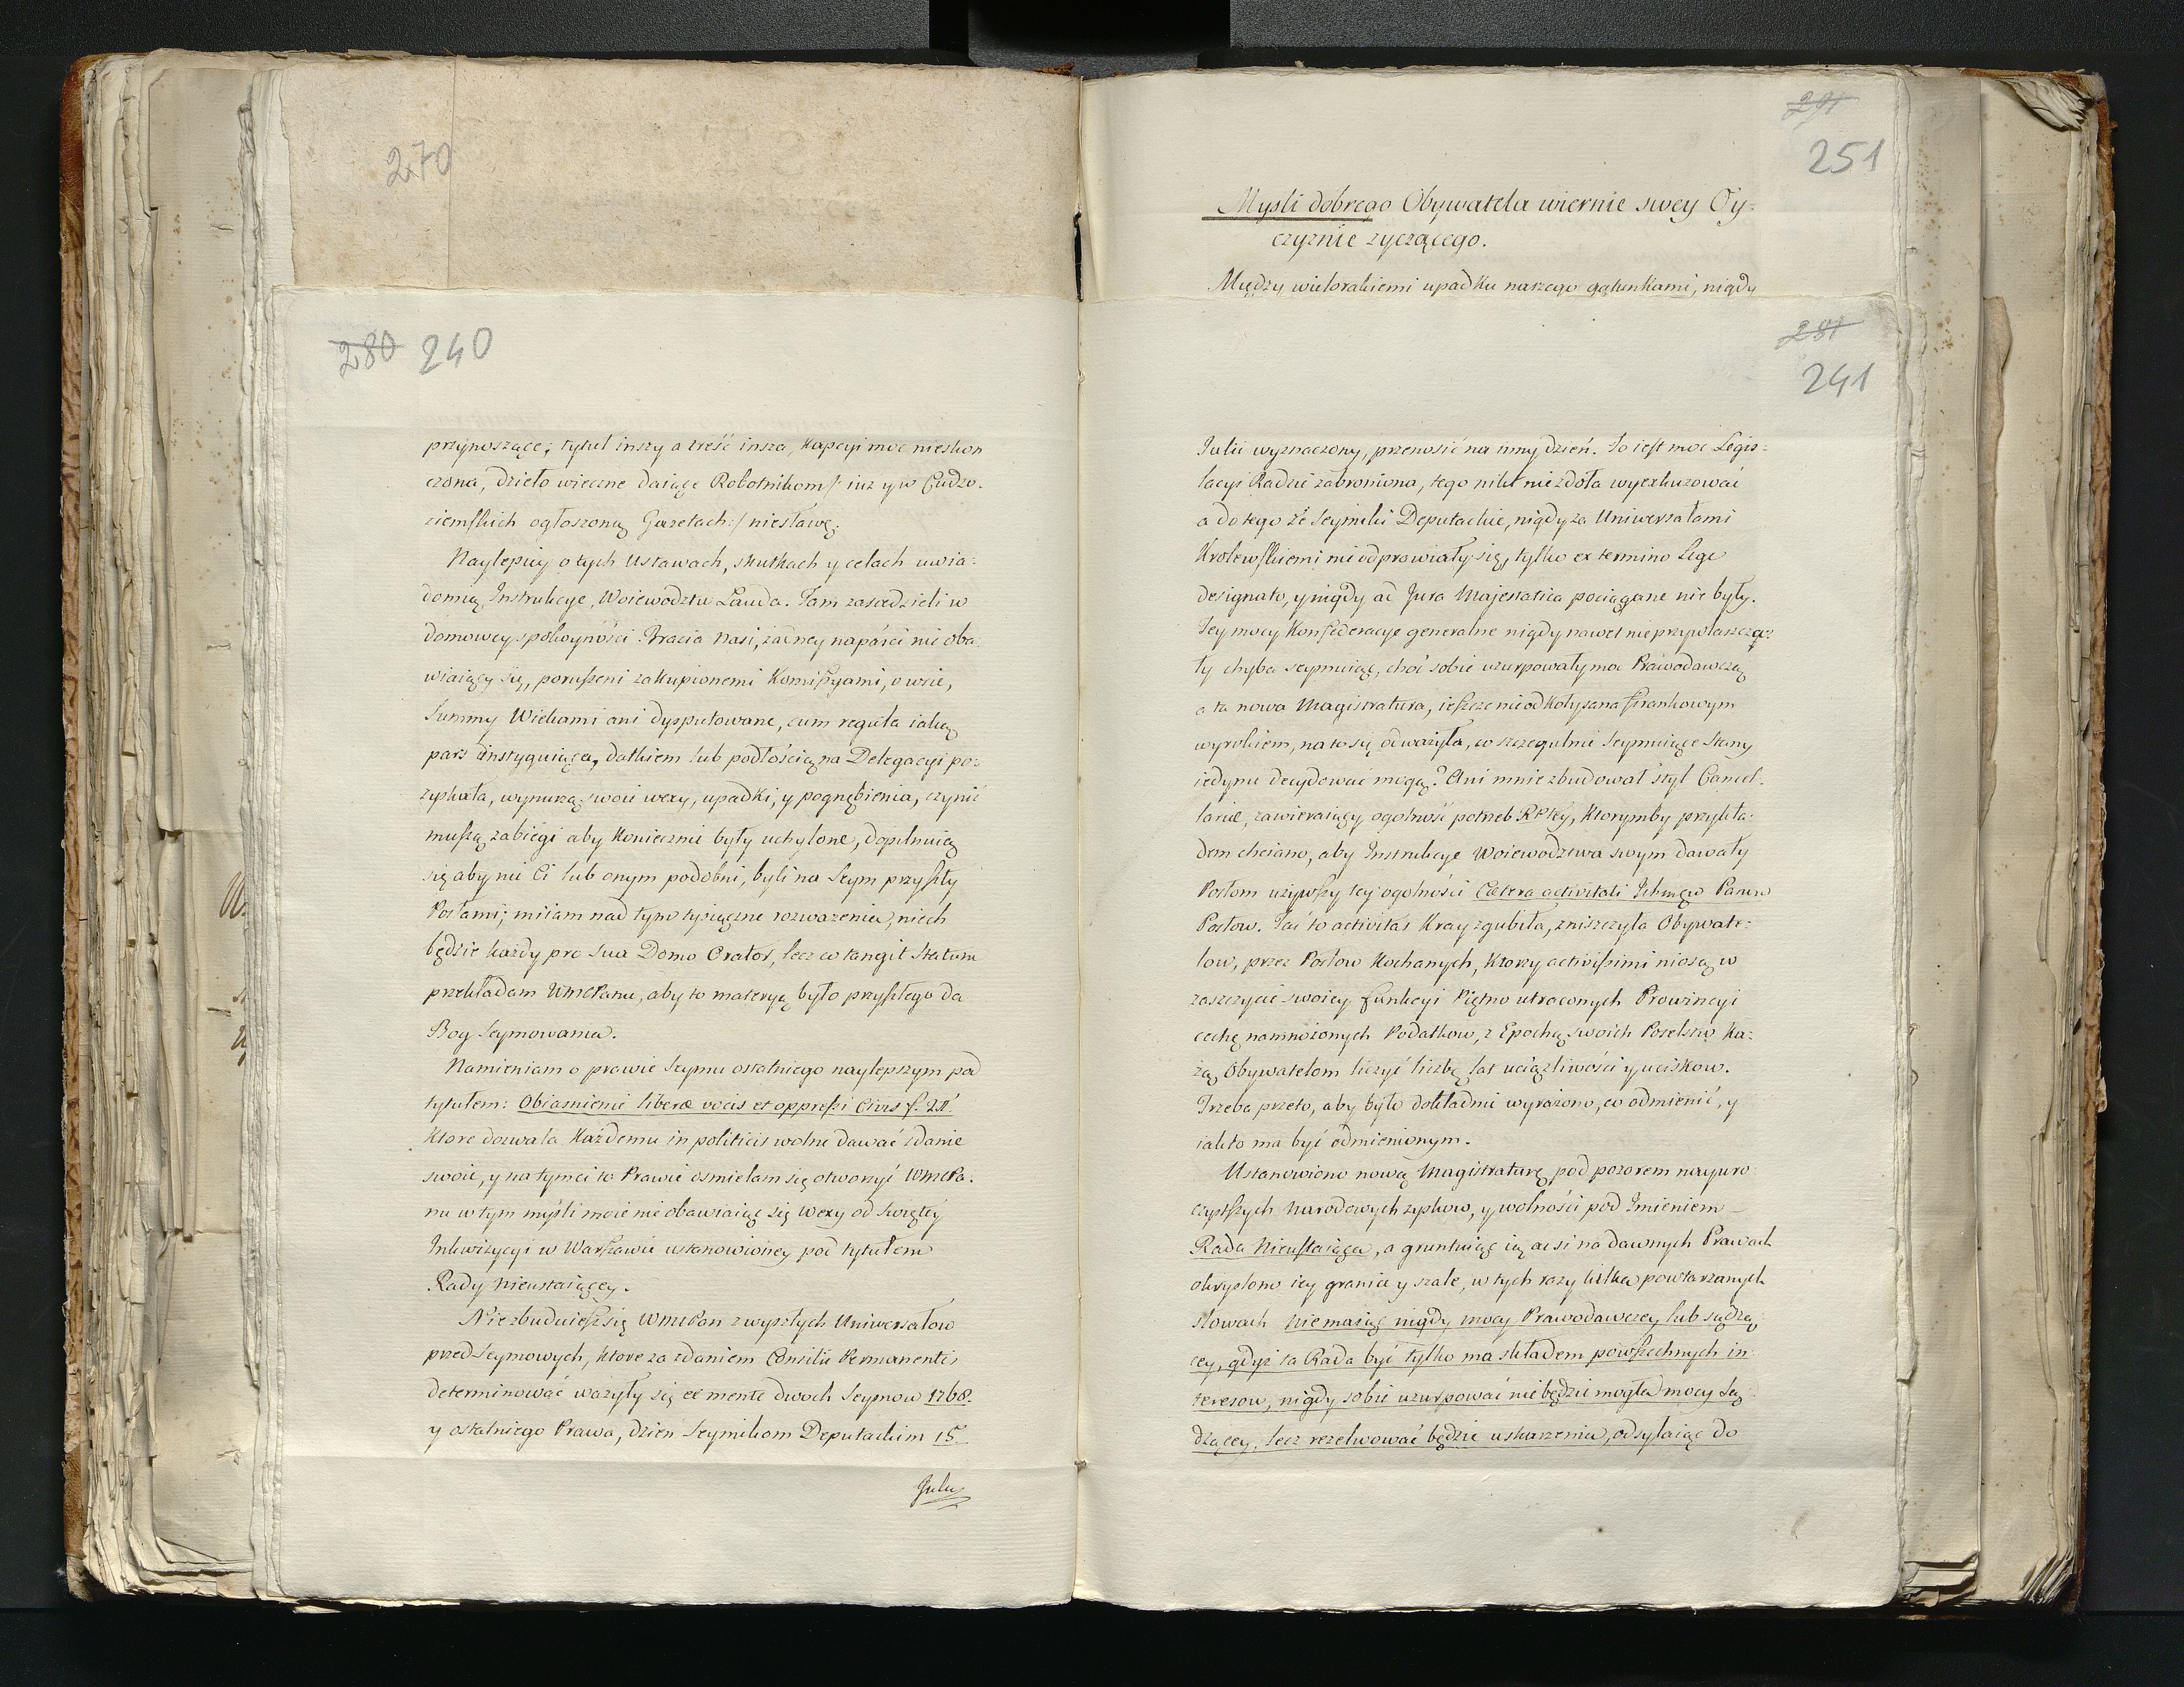 270
280 240
przynoszące; tytuł inszy a treść insza, Kapcyi moc nieskon
czona, dzieło wieczne daiące Robotnikom /: iuz y w Cudzo-
ziemskich ogłoszoną Gazetach :/ niesławę.
Naylepiey o tych Ustawach, skutkach y celach uwia-
domią Instrukcye, Woiewodztw Lauda. Tam zasiedzieli w
domowey spokoyności Bracia Nasi, zadney napaści nie oba
wiaiący się, poruszeni zakupionemi Komissyami, o wsie,
Summy Wiekami ani dysputowane, cum regula iaką
pars instyguiąca, datkiem lub podłością na Delegacyi po-
zyskała, wynurzą swoie wexy, upadki, y pognębienia, czynić
muszą zabiegi aby Koniecznie były uchylone, dopilnuią
się aby nie Ci lub onym podobni, byli na Seym przyszły
Posłami; miiam nad tym tysiączne rozwazenia, niech
będzie kazdy pro sua Domo Orator, lecz co tangit Statum
przekładam WMCPanu, aby to materyą było przyszłego da
Bog Seymowania.
Namieniam o prawie Seymu ostatniego naylepszym pod
tytułem: Obiasnienie liberæ vocis et oppressi Civis f.
Ktore dozwala Kazdemu in politicis wolne dawać zdanie
swoie, y na tymci to Prawie osmielam się otworzyć WMCPa.
nu w tym myśli moie nie obawiaiąc się wexy od Swiętey
Inkwizycyi w Warszawie ustanowioney pod tytułem
Rady Nieustaiącey.
Niezbuduiesz się WMCPan z wyszłych Uniwersałow
przed Seymowych, ktore za zdaniem Consilii Permanentis
determinować wazyły się ex mente dwoch Seymow 1768.
y ostatniego Prawa, dzien Seymikom Deputackim 15
Julii
291
251
Mysli dobrego Obywatela wiernie swey Oy-
czyznie zyczącego.
Między wielorakiemi upadku naszego gatunkami, nigdy
281
241
Julii wyznaczony, przenosić na inny dzień. To iest moc Legis-
lacyi Radzie zabroniona, tego nikt nie zdoła wyexkuzować
a do tego że Seymiki Deputackie, nigdy za Uniwersałami
Krolewskiemi nie odprawiały się, tylko ex termino Lege
designato, y nigdy ad Jura Majestatica pociągane nie były.
Tey mocy Konfederacye generalne nigdy nawet nie przywłaszcza-
ły chyba seymuiąc, choć sobie uzurpowały moc Prawodawczą
a ta nowa Magistratura, ieszcze nie odkołysana frankowym
wyrokiem, na to się odwazyła, co szczegulnie Seymuiące Stany
iedynie decydować mogą? Ani mnie zbudował styl Cancel-
lariæ, zawieraiący ogolność potrzeb RPltey, Ktorymby przykła-
dem chciano, aby Instrukcye Woiewodztwa swym dawały
Posłom uzywszy tey ogolności Cætera activitati Ichmciow Panow
Posłow. Tać to activitas Kray zgubiła, zniszczyła Obywate-
low, przez Posłow Kochanych, Ktorzy activissimi niosą w
zaszczycie swoiey funkcyi Piętno utraconych Prowincyi
cechę namnozonych Podatkow, z Epochą swoich Poselstw Ka-
żą Obywatelom liczyć liczbę lat uciązliwości y uciskow.
Trzeba przeto, aby było dokładnie wyrazono, co odmienić, y
iak to ma być odmienionym.
Ustanowiono nową Magistraturę pod pozorem nayuro
czystszych Narodowych zyskow, y wolności pod Imieniem
Rada Nieustaiąca, a gruntuiąc ią acsi na dawnych Prawach
okryslono iey granice y szale, w tych razy kilka powtarzanych
słowach Nie maiąc nigdy mocy Prawodawczey lub sądzą
cey, gdyz ta Rada być tylko ma składem powszechnych in
teresow, nigdy sobie uzurpować nie będzie mogła mocy są
dzącey, lecz rezelwować będzie uskarzenia, odsyłaiąc do